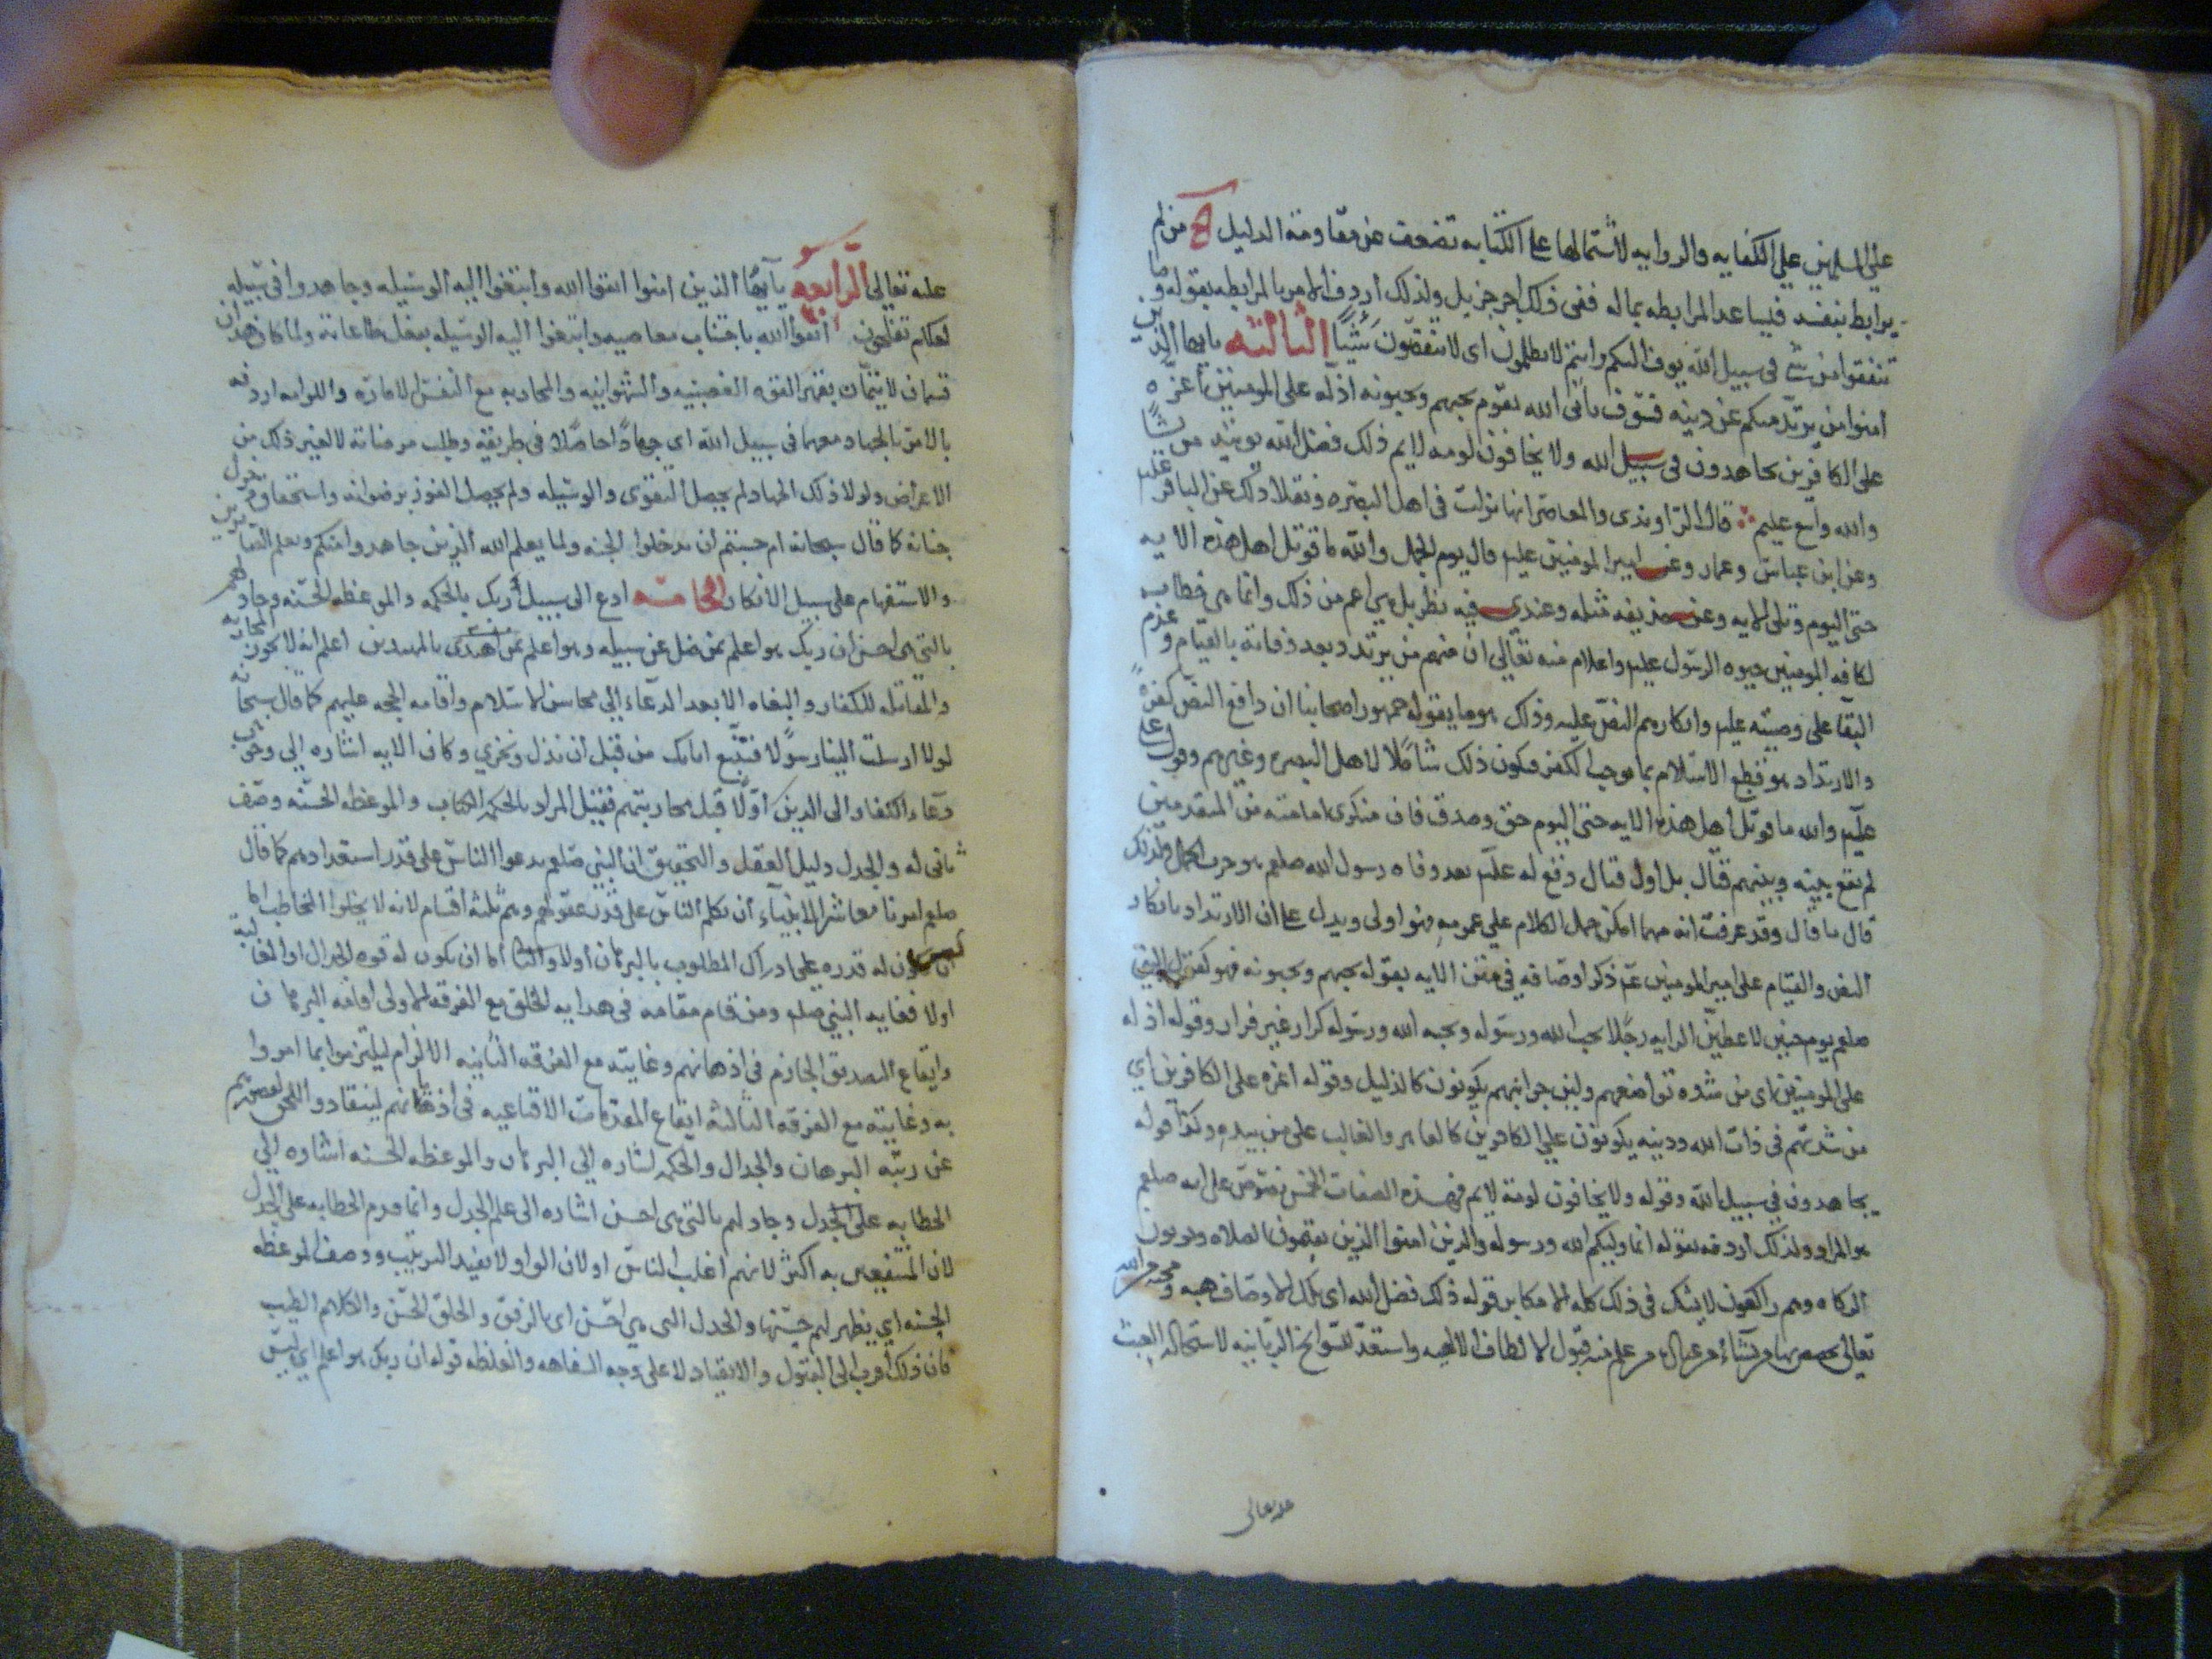 على المسلمين على الكفايه والروايه لاشتمالها على الكتابه تضعف عن مقاومة الدليل ح من لم
يرابط بنفسه فيساعد المرابطه بماله ففى ذلك اجر جزيل ولذلك أردف الامر بالمرابطه بقوله وما
تنفقوا من شئ فى سبيل الله يوف اليكم وانتم لا تظلمون اى لا تنقصون شيئا الثالثه يا يها الذين
امنوا من يرتد منكم عن دينه فسوف يأتى الله بقوم يحبهم ويحبونه اذله على المومنين أعزه
على الكافرين يجاهدون فى سبيل الله ولا يخافون لومه لايم ذلك فضل الله يوتيه من يشا
والله واسع عليم قال الراوندى والمعاصر انها نزلت فى اهل البصره ونقلا ذلك عن الباقر عليه
وعن ابن عباس وعمار وعن امير المومنين عليه قال يوم الجمل والله ما قوتل اهل هذه الايه
حتى اليوم وتلى الايه وعن حذيفه مثله وعندى فيه نظر بل هى اعم من ذلك وانما هى خطاب
لكافه المومنين حيوه الرسول عليه واعلام منه تعالى ان منهم من يرتد وبعد وفاته بالقيام وعزم
البقا على وصيته عليه وانكارهم النص عليه وذلك هو ما يقوله جمهور اصحابنا ان دافع النص كفره
والارتداد هو قطع الاسلام بما يوجب الكفر فيكون ذلك شاملا لاهل البصره وغيرهم وقول على
عليه والله ما قوتل اهل هذه الايه حتى اليوم حق وصدق فان منكرى امامته من المتقدمين
لم يقع بينه وبينهم قتال بل أول قتال وقع له عليه بعد وفاه رسول الله صلعم هو حرب الجمل فلذلك
قال ما قال وقد عرفت انه مهما امكن حمل الكلام على عمومه فهو اولى ويدل على ان الارتداد بانكار
النص والقيام على امير المومنين عم ذكر اوصافه فى متن الايه بقوله يحبهم ويحبونه فهو كقول النبى
صلعم يوم حنين لاعطين الرايه رجلا يحب الله ورسوله ويحبه الله ورسوله كرار غير فرار وقوله اذله
على المومنين اى من شده تواضعهم ولين جوانبهم يكونون كالذليل وقوله اعزه على الكافرين اى
من شدتهم فى ذات الله ودينه يكونون على الكافرين كالقاهر والغالب على من بيده وكذا قوله
يجاهدون فى سبيل الله وقوله ولا يخافون لومة لايم فهذه الصفات الخمس نصوص على انه صلعم
هو المراد ولذلك أردفه بقوله انما وليكم الله ورسوله والذين امنوا الذين يقيمون الصلاه ويوتون
الزكاه وهم راكعون لا يشك فى ذلك كله الا مكابر قوله ذلك فضل الله اى تلك الاوصاف هبه و من الله
تعالى يخص بها من يشاء من عباده من علم منه قبول الالطاف الالهيه واستعد للسوانح الربانيه لاستحاله العبث
عليه تعالى
عليه تعالى الرابعه يآيها الذين امنوا اتقوا الله وابتغوا اليه الوسيله وجاهدوا فى سبيله
لعلكم تفلحون أتقوا الله باجتناب معاصيه وابتغوا اليه الوسيله بفعل طاعاته ولما كان هذان
قسمان لا يتمان بقهر القوه الغضبيه والشهوانيه والمحاربه مع النفس الاماره واللوامه اردفه
بالامر بالجهاد معهما فى سبيل الله اى جهادا حاصلا فى طريقه وطلب مرضاته لا لغير ذلك من
الاعراض ولولا ذلك الجهاد لم يحصل التقوى والوسيله ولم يحصل الفوز برضوانه واستحقاق دخول
جنانه كما قال سبحانه ام حسبتم ان تدخلوا الجنه ولما يعلم الله الذين جاهدوا منكم ويعلم الصابرين
والاستفهام على سبيل الانكار الخامسه ادع الى سبيل ربك بالحكمه والموعظه الحسنه وجادلهم
بالتى هى احسن ان ربك هو اعلم بمن ضل عن سبيله وهو اعلم بالمهتدين اعلم انه لا يجوز محاربه
والمقاتله للكفار والبغاه الا بعد الدعاء الى محاسن الاسلام واقامه الحجه عليهم كما قال سبحانه
لولا ارسلت الينا رسولا فنتبع اياتك من قبل أن نذل ونخزى وكان الايه اشاره الى وجوب
دعاء الكفار الى الدين أولا قبل محاربتهم فقيل المراد بالحكمه الكتاب والموعظه الحسنه وصف
ثانى له والجدل دليل العقل والتحقيق ان النبى صلعم يدعوا الناس على قدر استعدادهم كما قال
صلعم امرنا معاشر الانبياء أن نكلم الناس على قدر عقولهم وهم ثلثه أقسام لانه لا يخلوا المخاطب اما
أن يكون له قدره على ادراك المطلوب بالبرهان أولا والثانى أما ان يكون له قوه الجدال او المغالبه
اولا فغايه النبى صلعم ومن قام مقامه فى هدايه الخلق مع الفرقه الاولى اقامه البرهان
وايقاع التصديق الجازم فى اذهانهم وغايته مع الفرقه الثانيه الالزام ليلتزموا بما امروا
به وغايته مع الفرقه الثالثه ايقاع المقدمات الاقناعيه فى اذهانهم لينقادوا للحق لقصورهم
عن رتبه البرهان والجدال والحكمه اشاره الى البرهان والموعظه الحسنه اشاره الى
الخطابه على الجدل وجادلهم بالتى هى احسن اشاره الى علم الجدل وانما قدم الخطابه على الجدل
لان المنتفعين به اكثر لانهم اغلب الناس او لان الواو لا تفيد الترتيب ووصف الموعظه
الحسنه اى يظهر لهم حسنها والجدل التى هى احسن اى بالرفق والخلق الحسن والكلام الطيب
فان ذلك اقرب الى القبول والانقياد لا على وجه السفاهه والغلظه قوله ان ربك هو اعلم اى ليس